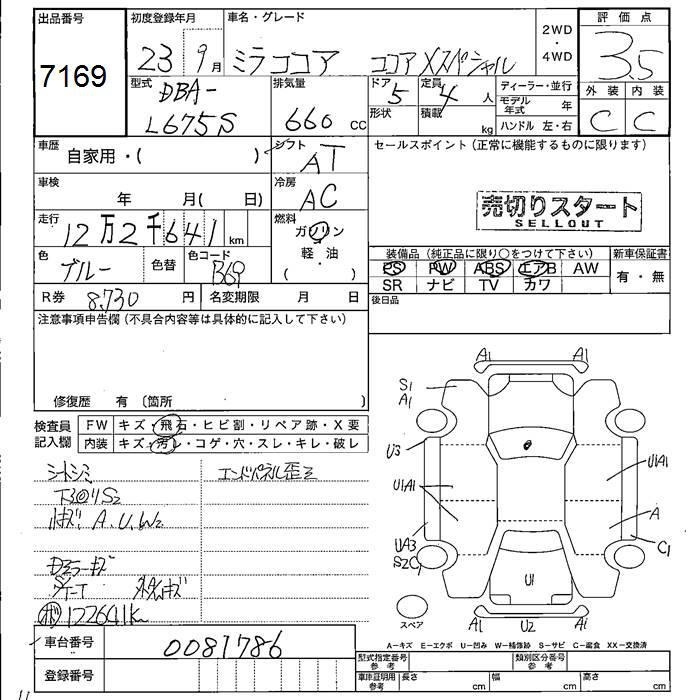 出品番号 初度登録年月 車名・グレード 2WD・4WD 評価点
7169 23 9月 ミラココア ココアXスペシャル 3.5
型式 DBA- 排気量 ドア 5 定員 4人 ディーラー・並行 外装 内装
L675S 660 cc 形状 積載 kg モデル年式 年 C C
ハンドル 左・右
車歴 自家用・( ) シフト AT セールスポイント(正常に機能するものに限ります)
車検 年 月( 日) 冷房 AC
売切りスタート
SELLOUT
走行 12万2千641km 燃料 ガソリン・軽油 ( )
装備品(純正品に限り○をつけて下さい) 新車保証書
色 ブルー 色替 色コード B69 PS PW ABS エアB AW 有・無
SR ナビ TV カワ
R券 8,730円 名変期限 月 日 後日品
注意事項申告欄(不具合内容等は具体的に記入して下さい)
修復歴 有 〔箇所 〕
検査員記入欄 FW キズ・飛石・ヒビ割・リペア跡・X要
内装 キズ・汚レ・コゲ・穴・スレ・キレ・破レ
シートシミ エンドパネル歪ミ
S2
A.U.W2
Dミラーキズ
122641km
車台番号 0081786
登録番号
A1 A1
S1
A1
U3
U1A1
U1A1
A
UA3
S2C1
C1
U1
スペア A1 U2 A1
A-キズ E-エクボ U-凹み W-補修跡 S-サビ C-腐食 XX-交換済
型式指定番号 参考 類別区分番号 参考
車庫証明用 参考 長さ cm 幅 cm 高さ cm